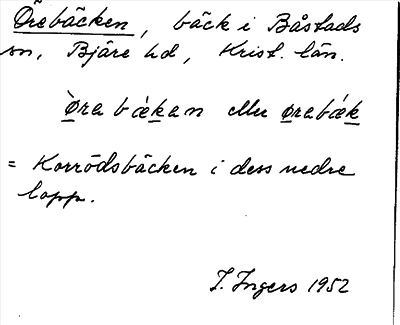 Örebäcken, bäck i Båstads
sn, Bjäre hd, Krist. län.
ørabækan eller ørabæk
= Korrödsbäcken i dess nedre
lopp.
I. Ingers 1952